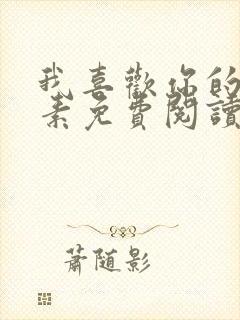 我喜歡你的
素免費閱讀
蕭随影